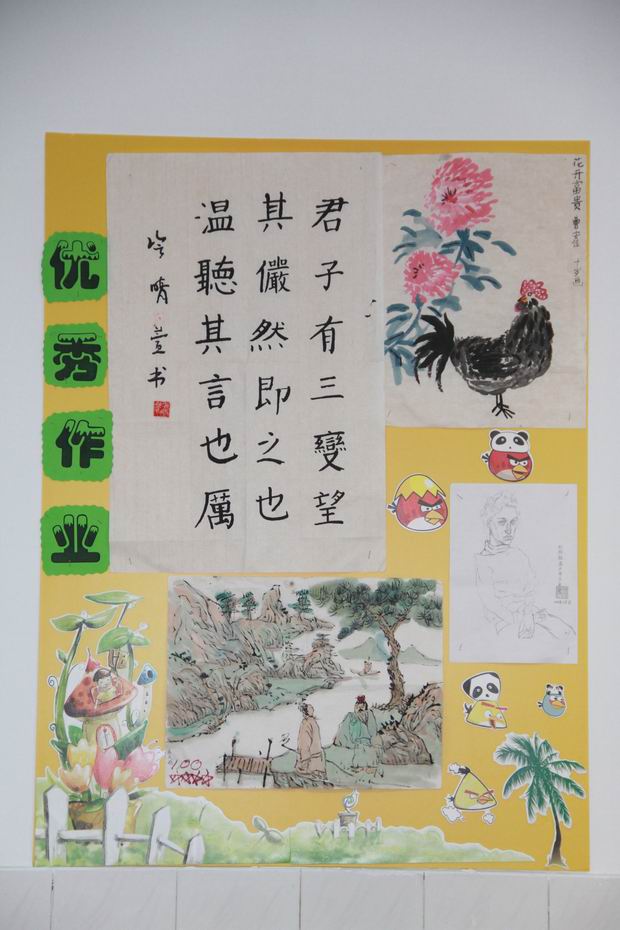 优秀作业
君子有三變望
其儼然即之也
温聽其言也厲
晴萱书
花开富貴 曹 十岁画
100